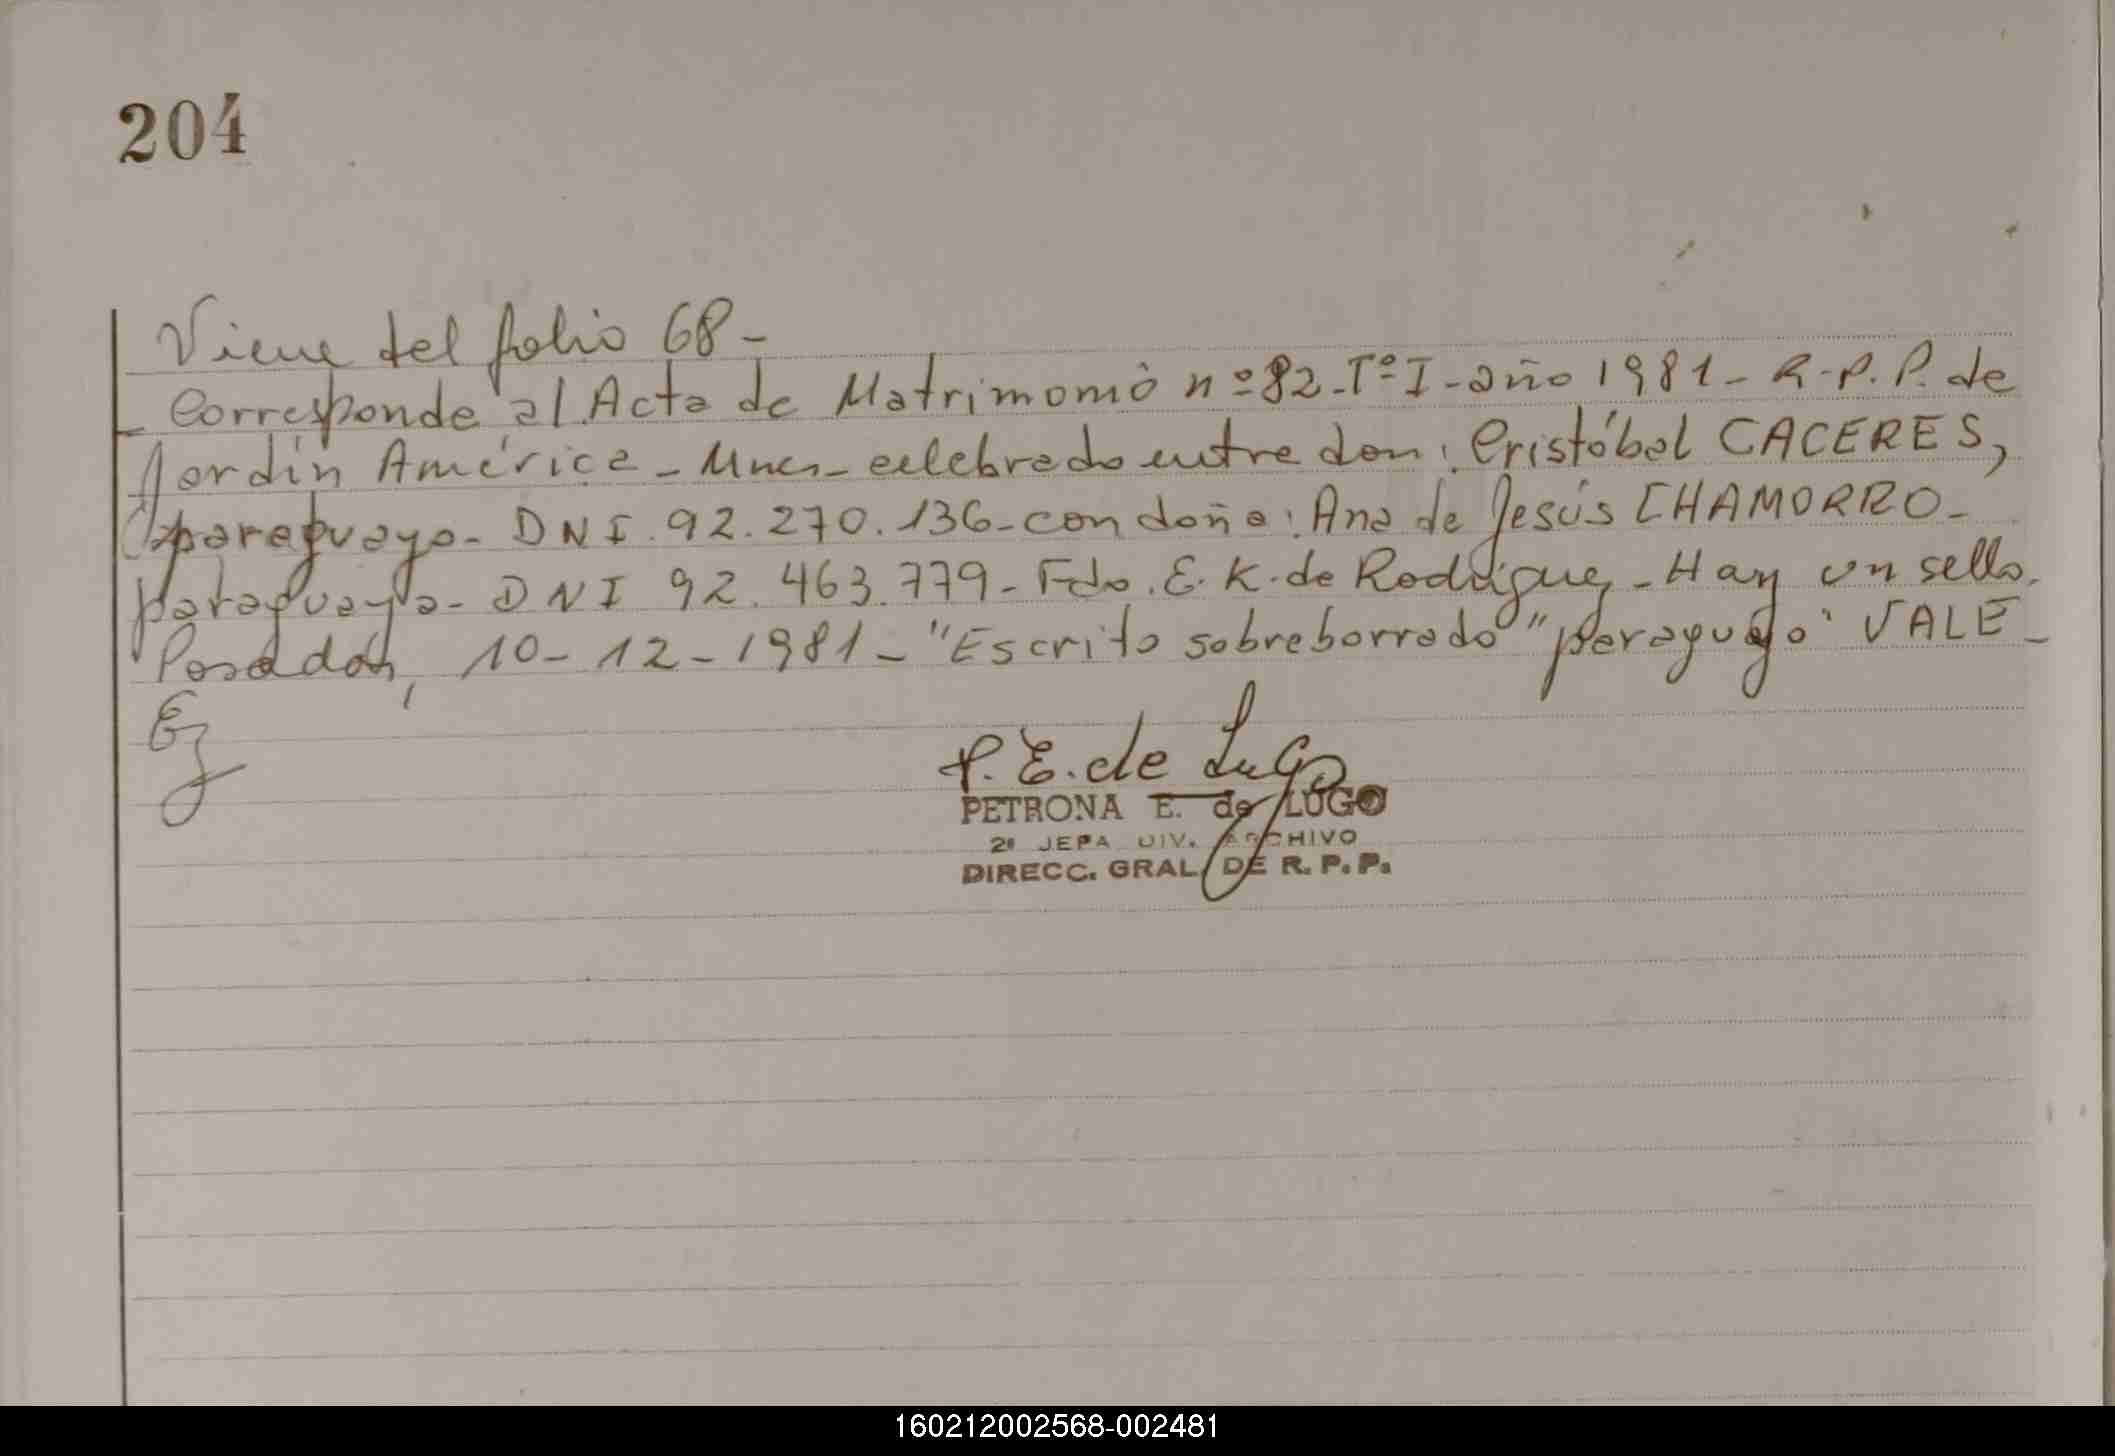 204
Viene del folio 68-
Corresponde al Acta de Matrimonio nº 82-Tº I-año 1981- R.P.P. de
Jardín América - Mnes- celebrado entre don: Cristóbal CACERES,
paraguayo- DNI. 92.270.136- con doña: Ana de Jesús CHAMORRO-
paraguaya- DNI 92.463.779- Fdo. E. K. de Rodríguez - Hay un sello.
Posadas, 10-12-1981- "Escrito sobreborrado" "paraguayo" VALE-
P. E. de Lugo
PETRONA E. de LUGO
2º JEFA DIV. ARCHIVO
DIRECC. GRAL DE R. P. P.
160212002568-002481